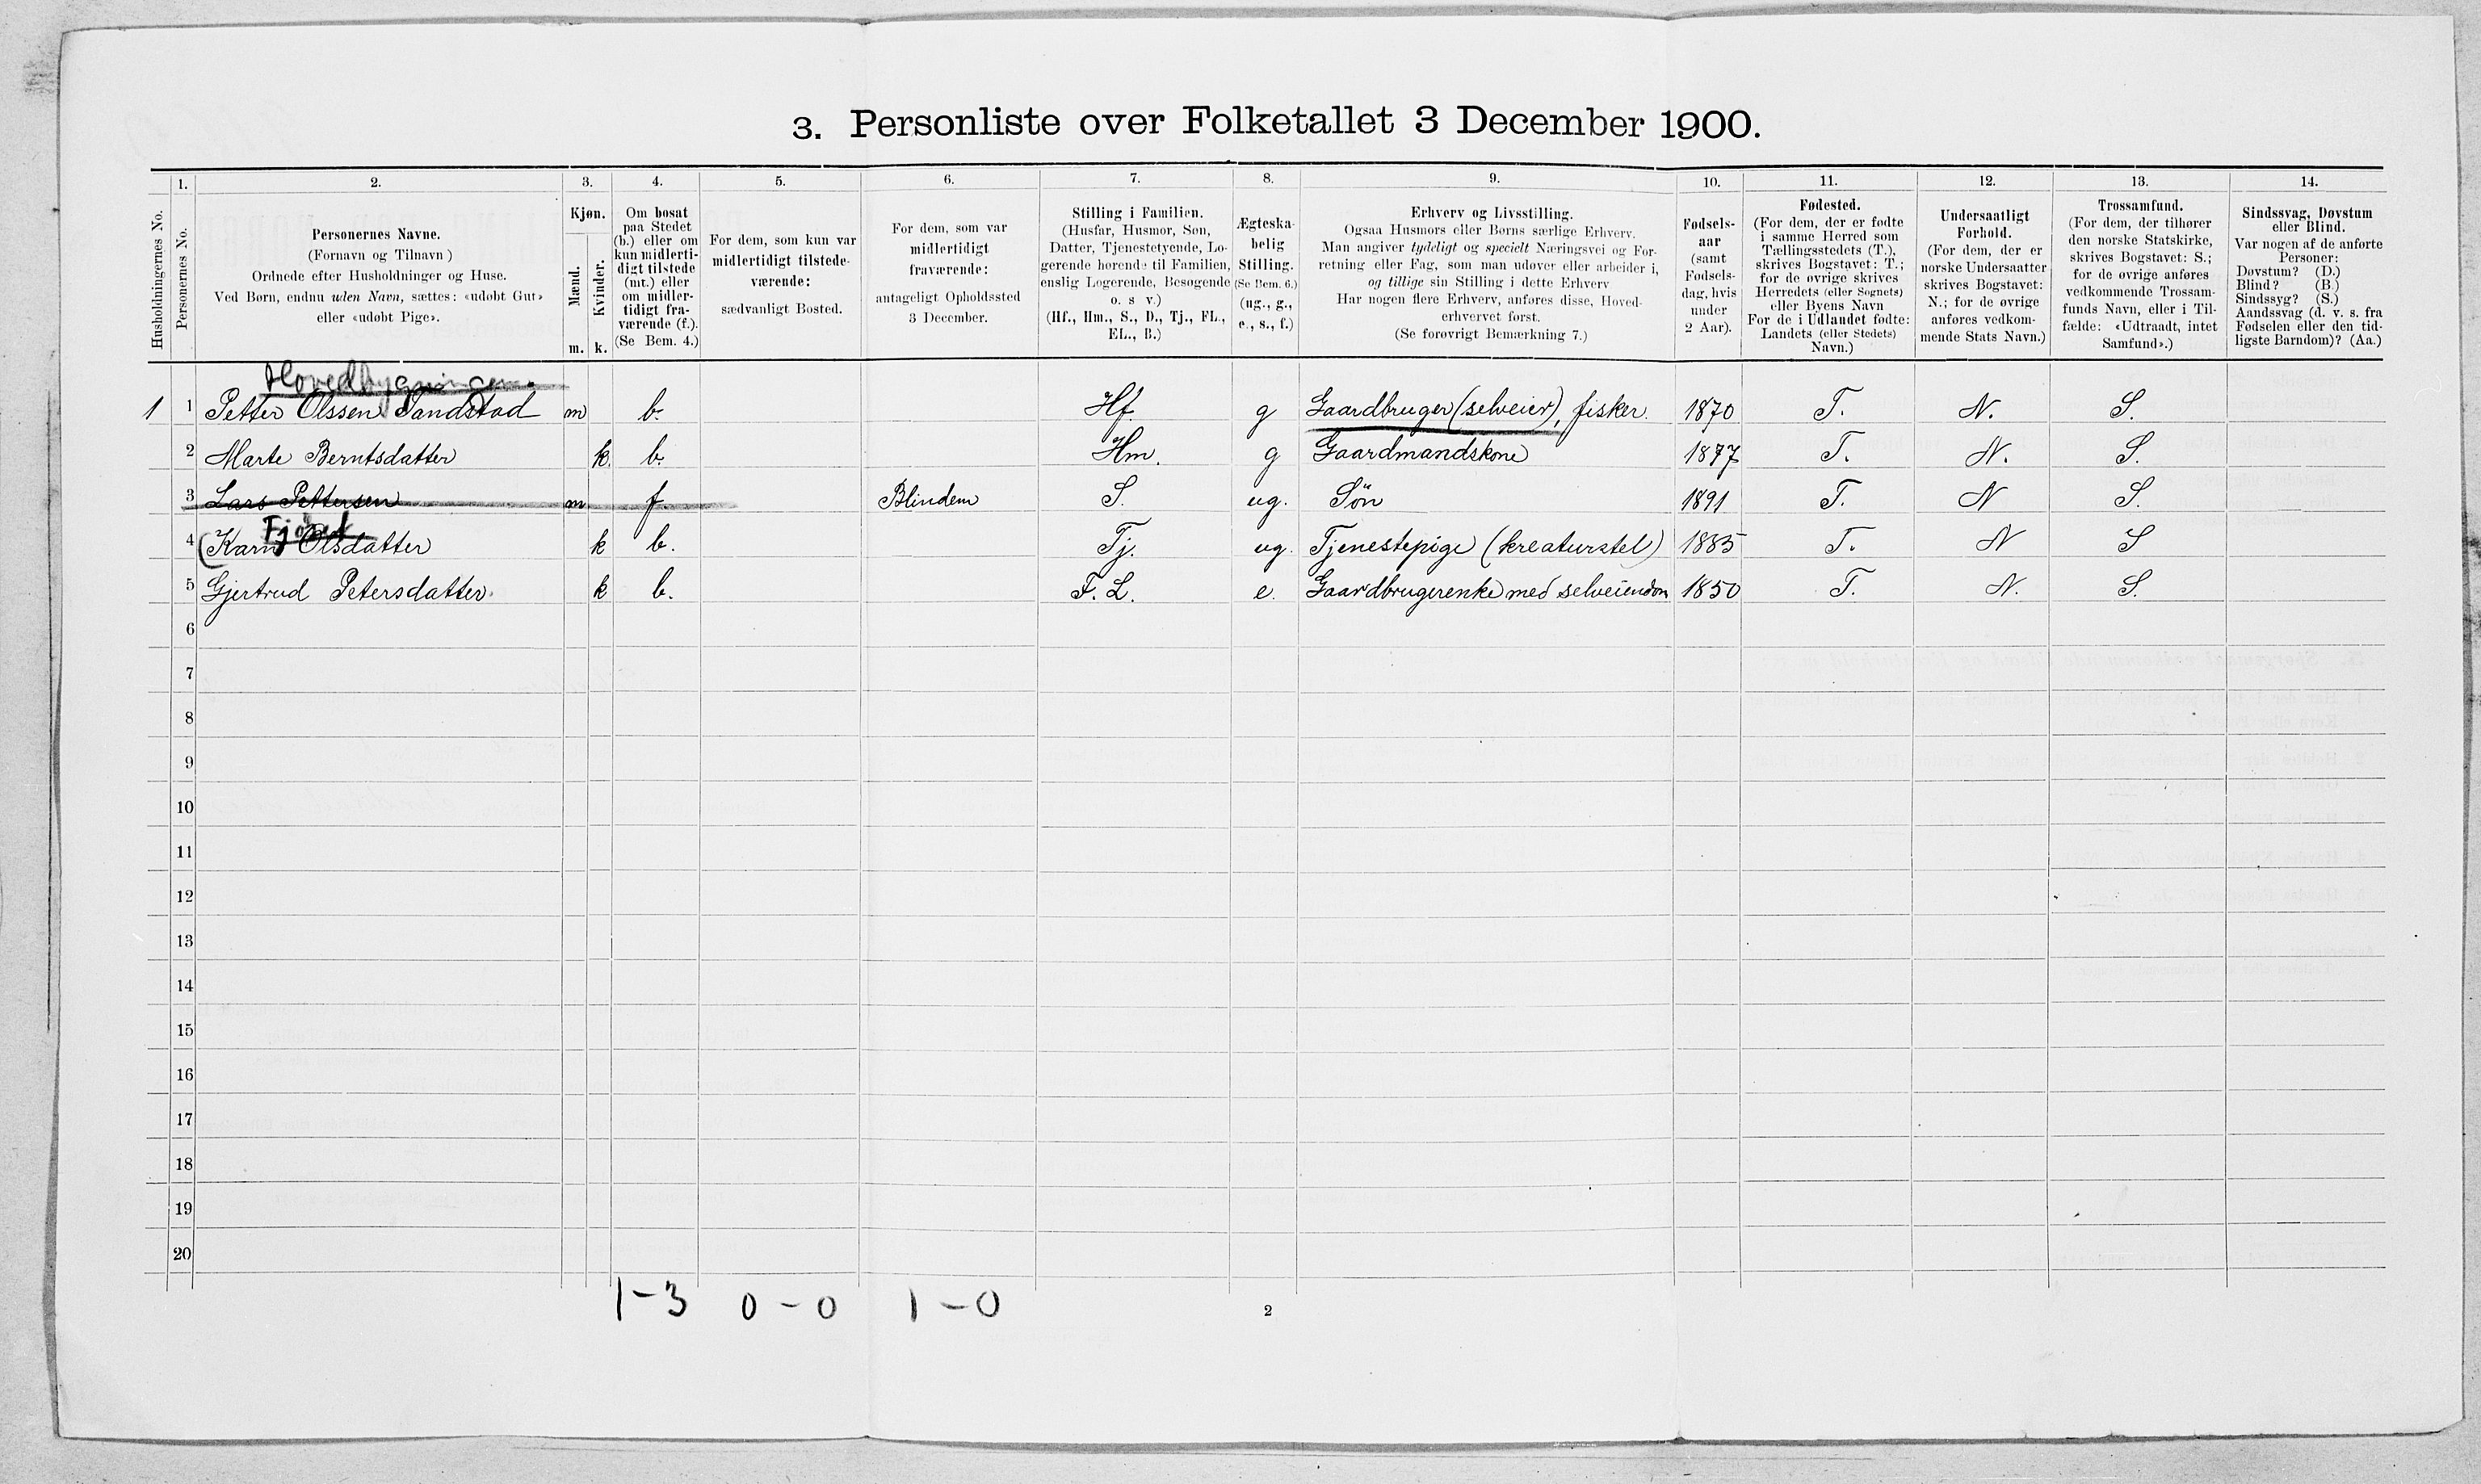 3. Personliste over Folketallet 3 December 1900.
Husholdningernes No.
1.
Personernes No.
2.
Personernes Navne.
(Fornavn og Tilnavn )
Ordnede efter Husholdninger og Huse.
Ved Børn, endnu uden Navn, sættes: «udøbt Gut»
eller «udøbt Pige».
3.
Kjøn.
Mænd.
Kvinder.
m. k.
4.
Om bosat
paa Stedet
(b.) eller om
kun midlerti-
digt tilstede
(mt.) eller
om midler-
tidigt fra-
værende (f.).
(Se Bem. 4.)
5.
For dem, som kun var
midlertidigt tilstede-
værende:
sædvanligt Bosted.
6.
For dem, som var
midlertidigt
fraværende:
antageligt Opholdssted
3 December.
7.
Stilling i Familien.
(Husfar, Husmor, Søn,
Datter, Tjenestetyende, Lo-
gerende hørende til Familien,
enslig Logerende, Besøgende
o. s v.)
(Hf., Hm., S., D., Tj., FL.,
EL., B.)
8.
Ægteska-
belig
Stilling.
(Se Bem. 6.)
(ug., g.,
e., s., f.)
9.
Erhverv og Livsstilling.
Ogsaa Husmors eller Børns særlige Erhverv.
Man angiver tydeligt og specielt Næringsvei og For-
retning eller Fag, som man udøver eller arbeider i,
og tillige sin Stilling i dette Erhverv
Har nogen flere Erhverv, anføres disse, Hoved-
erhvervet først.
(Se forøvrigt Bemærkning 7.)
10.
Fødsels-
aar
(samt
Fødsels-
dag, hvis
under
2 Aar).
11.
Fødested.
(For dem, der er fødte
i samme Herred som
Tællingsstedets (T.),
skrives Bogstavet: T.;
for de øvrige skrives
Herredets (eller Sognets)
eller Byens Navn
For de i Udlandet fødte:
Landets (eller Stedets)
Navn.)
12.
Undersaatligt
Forhold.
(For dem, der er
norske Undersaatter
skrives Bogstavet:
N.; for de øvrige
anføres vedkom-
mende Stats Navn.)
13.
Trossamfund.
(For dem, der tilhører
den norske Statskirke,
skrives Bogstavet: S.;
for de øvrige anføres
vedkommende Trossam-
funds Navn, eller i Til-
fælde: «Udtraadt, intet
Samfund».)
14.
Sindssvag, Døvstum
eller Blind.
Var nogen af de anførte
Personer:
Døvstum? (D.)
Blind? (B.)
Sindssyg? (S.)
Aandssvag (d. v. s. fra
Fødselen eller den tid-
ligste Barndom)? (Aa.)
Hovedbygningen.
1 1 Petter Olssen Sandstad m b. Hf. g Gaardbruger (selveier), fisker. 1870 T. N. S.
2 Marte Berntsdatter k. b. Hm. g Gaardmandskone 1877 T. N. S.
3 Lars Pettersen m f. Blindem S. ug. Søn 1891 T. N S.
Fjøset
4 (Karn) Olsdatter k b. Tj. ug. Tjenestepige (kreaturstel) 1885 T. N S
5 Gjertrud Petersdatter. k b. F. L. e. Gaardbrugerenke med selveiendom 1850 T. N. S.
6
7
8
9
10
11
12
13
14
15
16
17
18
19
20
1 - 3 0 - 0 1 - 0
2